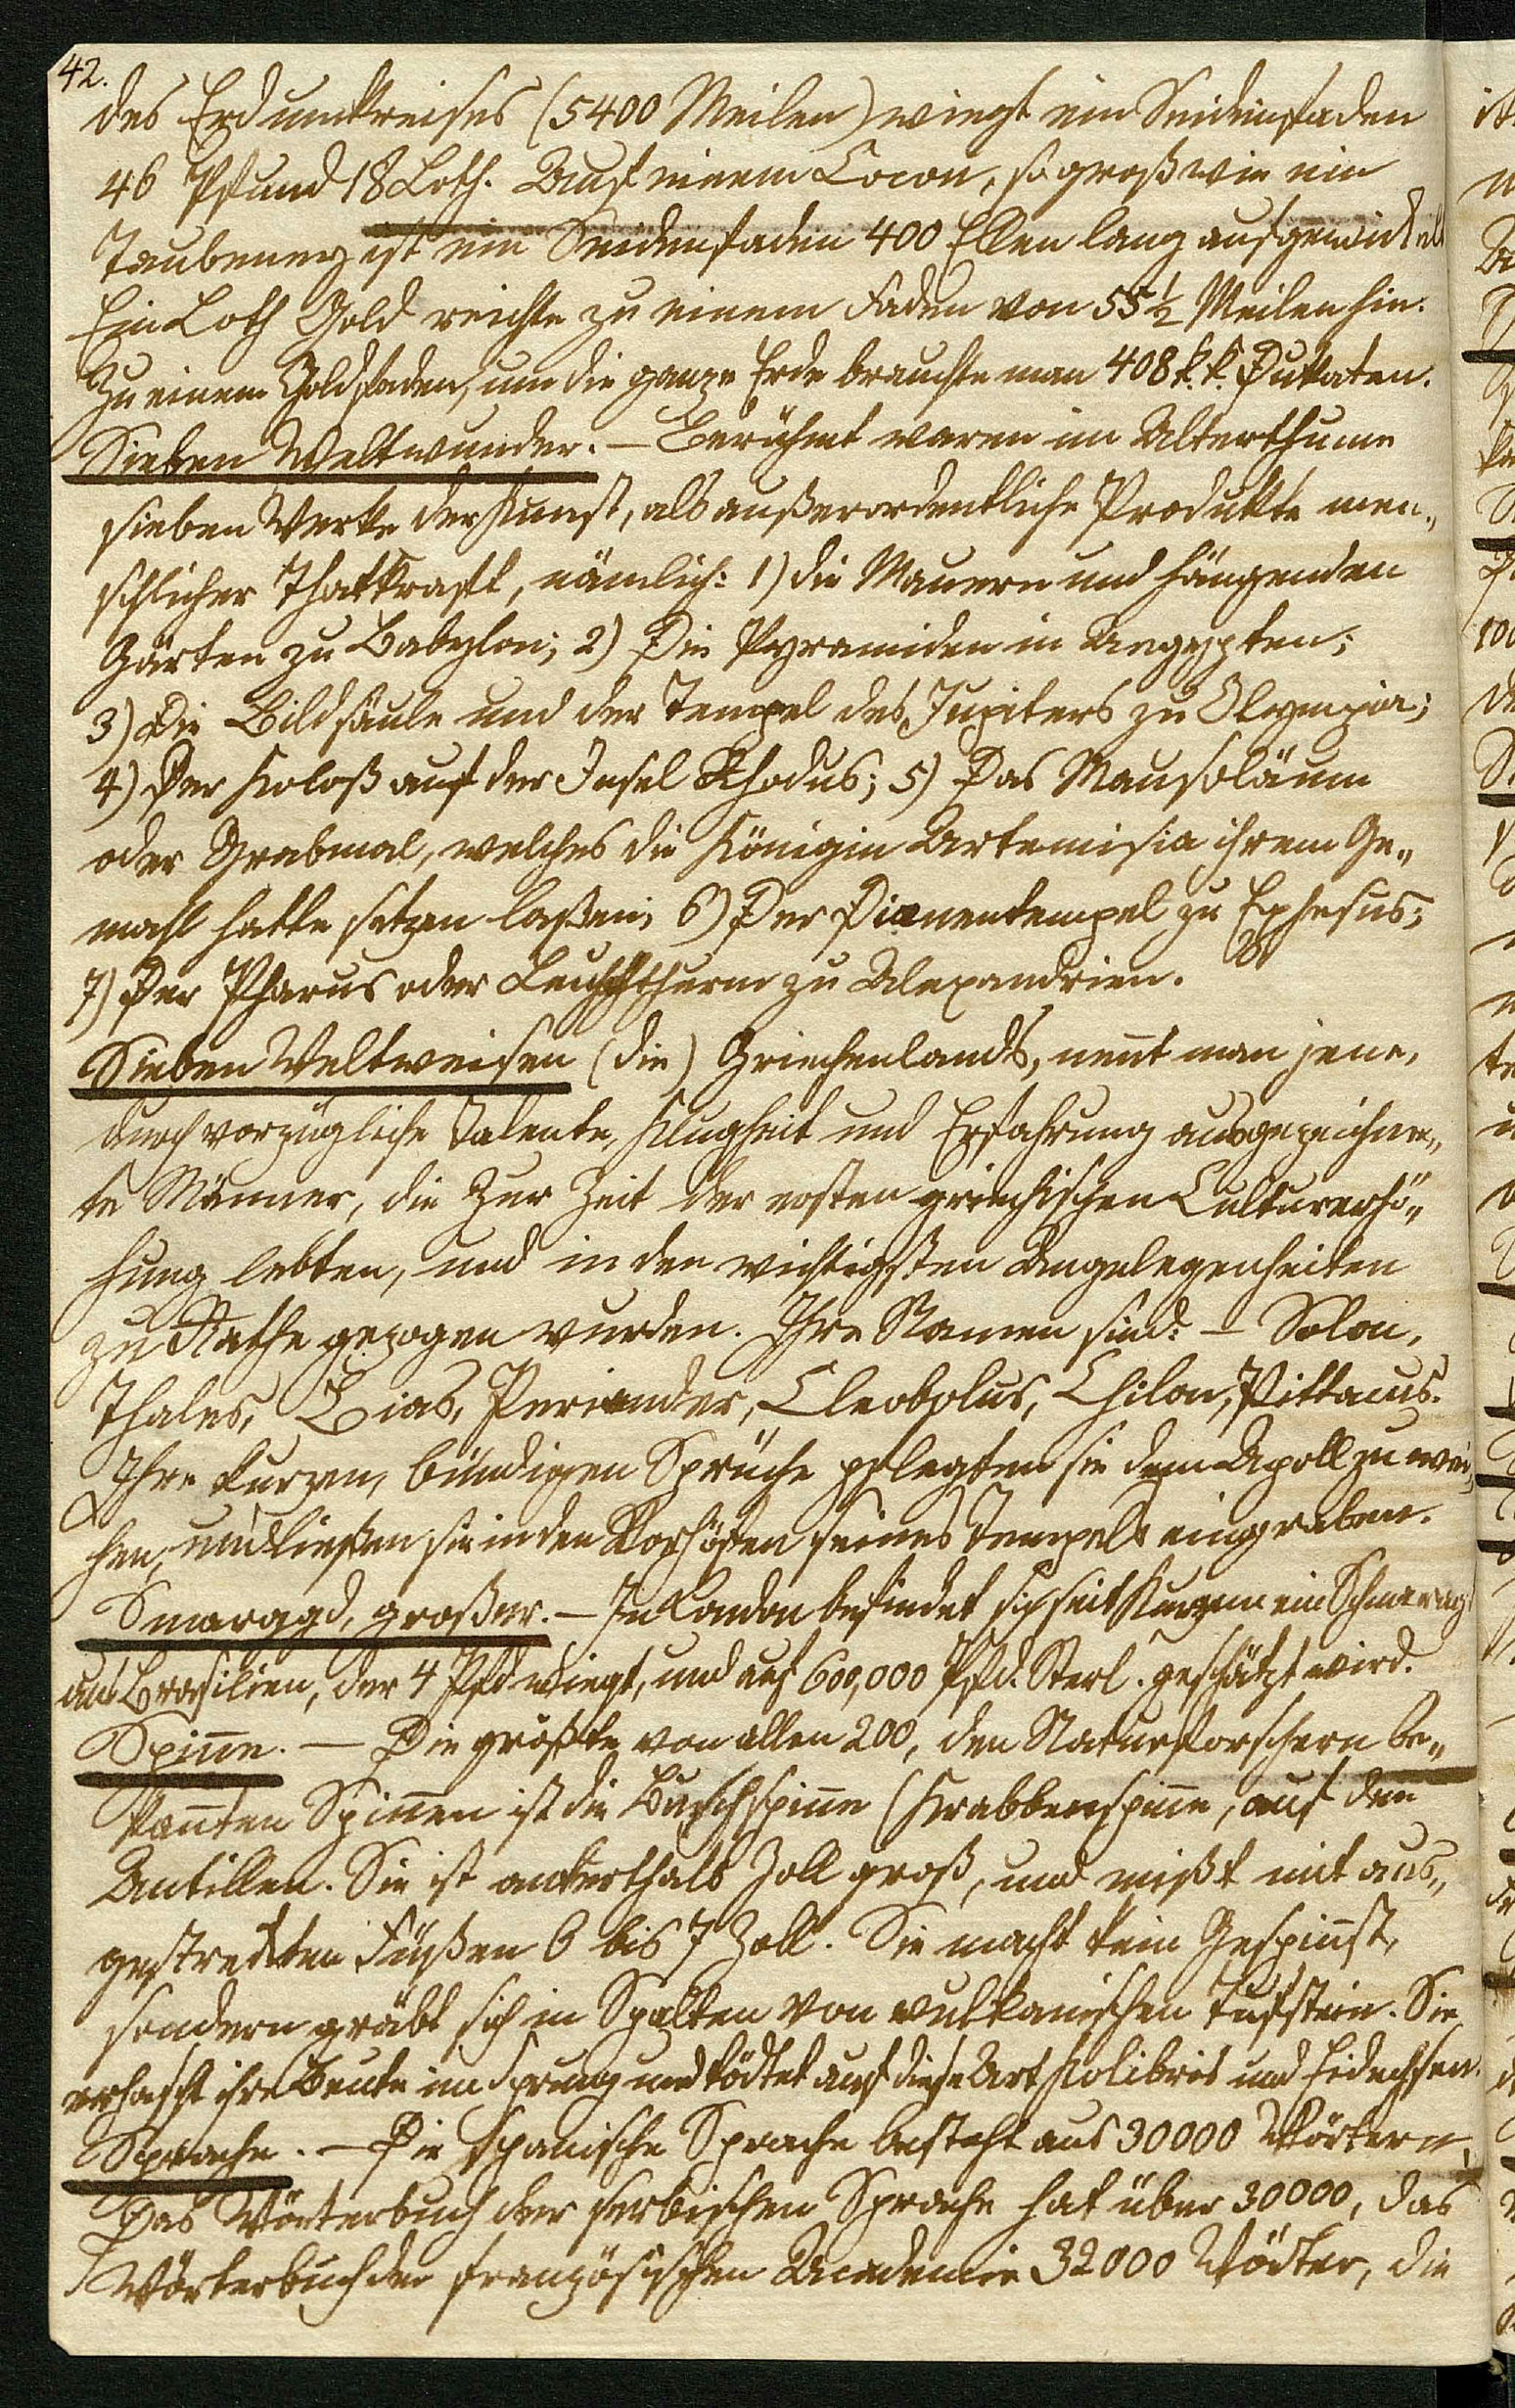 42.
des Erdumkreises (5400 Meilen) wiegt ein Seidenfaden
46 Pfund 18 Loth. Auf einem Cocon, so groß wie ein
Taubeney ist ein Seidenfaden 400 Ellen lang aufgewickelt
Ein Loth Gold reichte zu einem Faden von 55½ Meilen hin.
Zu einem Goldfaden, um die ganze Erde brauchte man 408 k. k. Dukaten.
Sieben Weltwunder. — Berühmt waren im Alterthume
sieben Werke der Kunst, als außerordentliche Produkte men„
schlicher Thatkraft, nämlich: 1) die Mauern und hängenden
Gärten zu Babylon; 2) Die Pyramiden in Aegypten;
3) Die Bildsäule und der Tempel des Jupiters zu Olympia;
4) Der Koloß auf der Insel Rhodus; 5) Das Mausoläum
oder Grabmal, welches die Königin Artemisia ihrem Ge„
mahl hatte setzen laßen; 6) Der Dianentempel zu Ephesus;
7) Der Pharus oder Leuchtthurm zu Alexandrien.
Sieben Weltweisen (die) Griechenlands, nennt man jene,
durch vorzügliche Talente, Klugheit und Erfahrung ausgezeichne„
te Männer, die zur Zeit der ersten griechischen Culturerhö„
hung lebten, und in den wichtigsten Angelegenheiten
zu Rathe gezogen wurden. Ihre Namen sind: — Solon,
Thales, Bias, Periander, Cleobolus, Chilon, Pittacus.
Ihre kurzen, bündigen Sprüche pflegten sie dem Apoll zu wei„
hen, und ließen sie in den Vorhöfen seines Tempels eingraben.
Smaragd, großer. — In London befindet sich seit Kurzem ein Schmaragd
aus Brasilien, der 4 Pfd wiegt, und auf 600,000 Pfd. Sterl. geschätzt wird.
Spinne. — Die größte von allen 200, den Naturforschern be„
kannten Spinnen ist die Buschspinne (Krabbenspinne, auf den
Antillen. Sie ist anderthalb Zoll groß, und mißt mit aus„
gestreckten Füßen 6 bis 7 Zoll. Sie macht kein Gespinnst,
sondern gräbt sich in Spalten von vulkanischen Tuffstein. Sie
erhascht ihre Beute im Sprung und tödtet auf diese Art Kolibris und Eidechsen.
Sprache. — Die spanische Sprache besteht aus 30000 Wörtern,
Das Wörterbuch der serbischen Sprache hat über 30000, das
Wörterbuch der französischen Academie 32000 Wörter, die